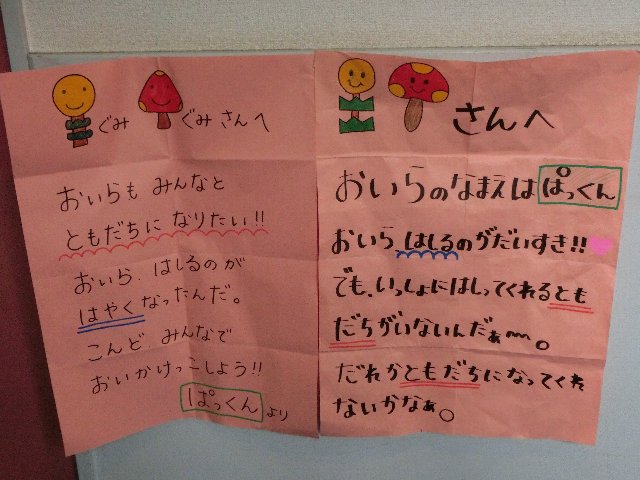 ぐみ ぐみさんへ
おいらも みんなと
ともだちに なりたい!!
おいら、はしるのが
はやくなったんだ。
こんど、みんなで
おいかけっこしよう!!
ぱっくん より
さんへ
おいらのなまえは ぱっくん
おいら はしるのがだいすき!!
でも、いっしょにはしってくれるとも
だちがいないんだぁ〜。
だれかともだちになってくれ
ないかなぁ。